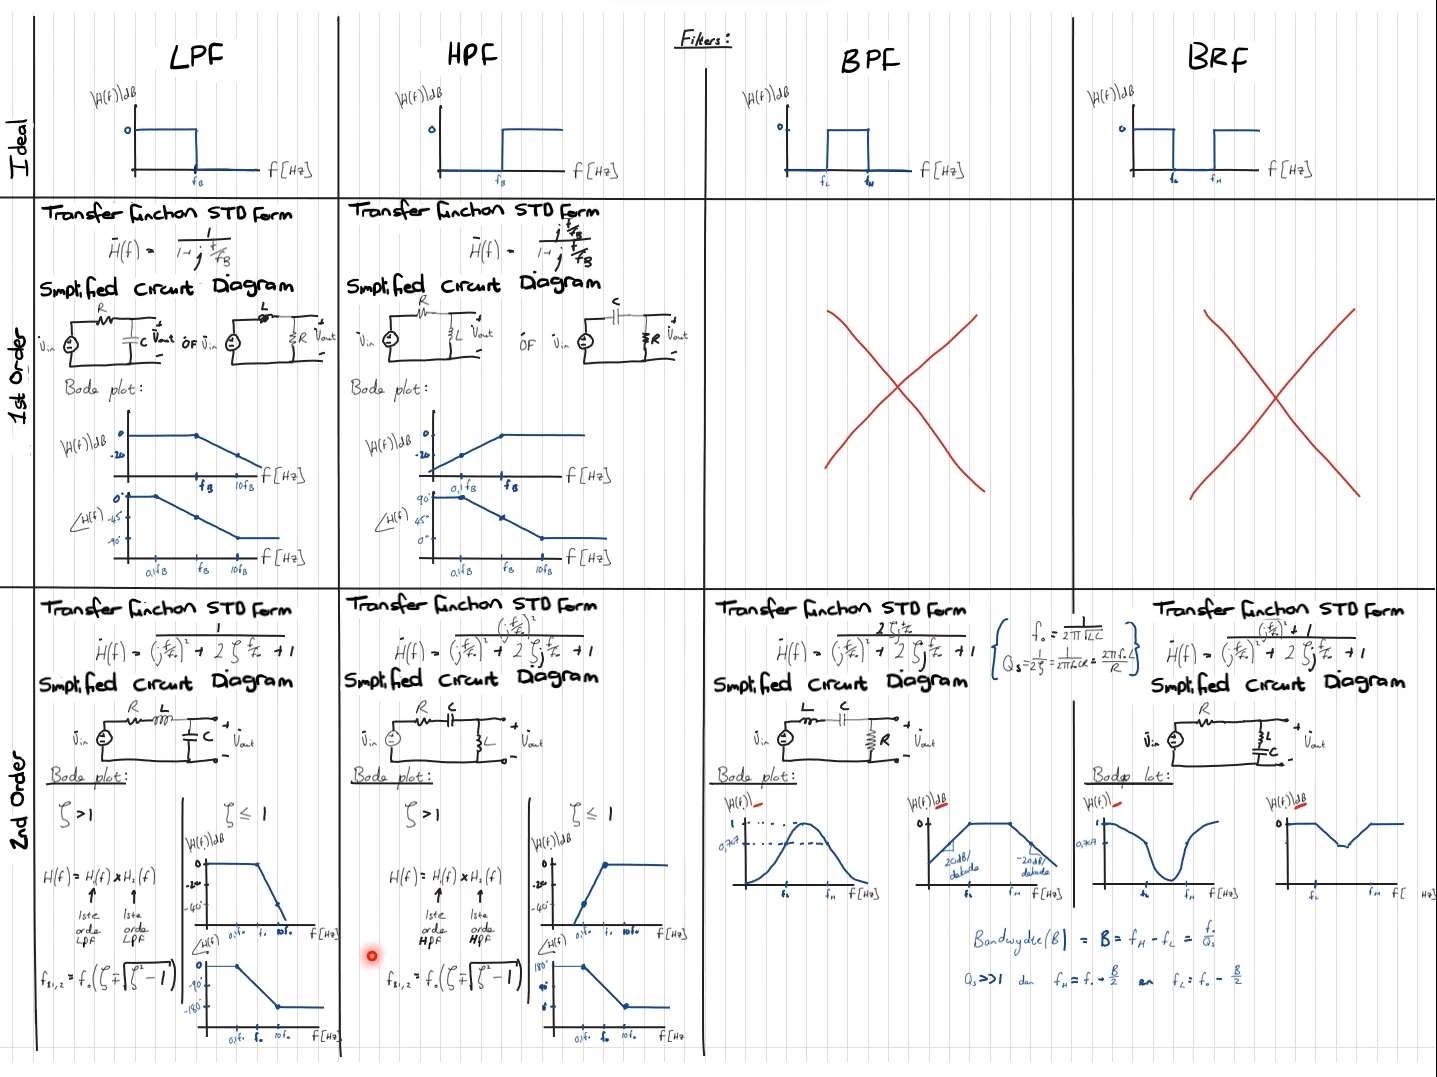 Filters:
LPF
HPF
BPF
BRF
Ideal
|H(f)|dB
0
f_B
f[Hz]
|H(f)|dB
0
f_B
f[Hz]
|H(f)|dB
0
f_L
f_H
f[Hz]
|H(f)|dB
0
f_L
f_H
f[Hz]
1st Order
Transfer function STD Form
H(f) = 1 / (1+j f/f_B)
Smplified Circuit Diagram
R
V_in
C
V_out
OF
L
V_in
R
V_out
Bode plot:
|H(f)|dB
0
-20
f_B
10f_B
f[Hz]
∠H(f)
0°
-45°
-90°
0,1f_B
f_B
10f_B
f[Hz]
Transfer function STD Form
H(f) = j f/f_B / (1+j f/f_B)
Smplified Circuit Diagram
R
V_in
L
V_out
OF
C
V_in
R
V_out
Bode plot:
|H(f)|dB
0
-20
0,1f_B
f_B
f[Hz]
∠H(f)
90°
45°
0°
0,1f_B
f_B
10f_B
f[Hz]
2nd Order
Transfer function STD Form
H(f) = 1 / ((j f/f_o)² + 2ζj f/f_o + 1)
Smplified Circuit Diagram
R
L
V_in
C
V_out
Bode plot:
ζ>1
H(f) = H_1(f) x H_2(f)
1ste orde LPF
1ste orde LPF
f_B1,2 = f_o(ζ∓√ζ²-1)
ζ ≤ 1
|H(f)|dB
0
-20
-40
0,1f_o
f_o
10f_o
f[Hz]
∠H(f)
0
-90°
-180°
0,1f_o
f_o
10f_o
f[Hz]
Transfer function STD Form
H(f) = (j f/f_o)² / ((j f/f_o)² + 2ζj f/f_o + 1)
Smplified Circuit Diagram
R
C
V_in
L
V_out
Bode plot:
ζ>1
H(f) = H_1(f) x H_2(f)
1ste orde HPF
1ste orde HPF
f_B1,2 = f_o(ζ∓√ζ²-1)
ζ ≤ 1
|H(f)|dB
0
-20
-40
0,1f_o
f_o
10f_o
f[Hz]
∠H(f)
180°
90°
0°
0,1f_o
f_o
10f_o
f[Hz]
Transfer function STD Form
H(f) = 2ζj f/f_o / ((j f/f_o)² + 2ζj f/f_o + 1)
f_o = 1 / 2π√LC
Q_s = 1/2ζ = 1/2πf_oCR = 2πf_oL/R
Smplified Circuit Diagram
L
C
V_in
R
V_out
Bode plot:
|H(f)|
1
0,707
f_L
f_H
f[Hz]
|H(f)|dB
0
20dB/dekade
-20dB/dekade
f_L
f_H
f[Hz]
Transfer function STD Form
H(f) = (j f/f_o)² + 1 / ((j f/f_o)² + 2ζj f/f_o + 1)
Smplified Circuit Diagram
R
V_in
L
C
V_out
Bode plot:
|H(f)|
1
0,707
f_L
f_H
f[Hz]
|H(f)|dB
0
f_L
f_H
f[Hz]
Bandwydte(B) = B = f_H - f_L = f_o/Q_s
Q_s>>1 dan f_H = f_o + B/2 en f_L = f_o - B/2